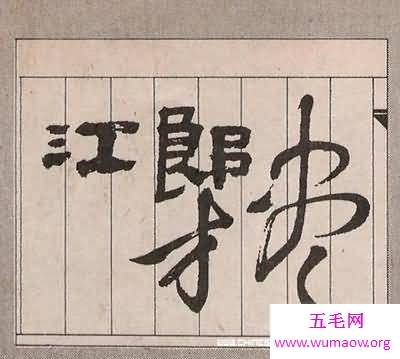 江郎才尽
五毛网
www.wumaow.org